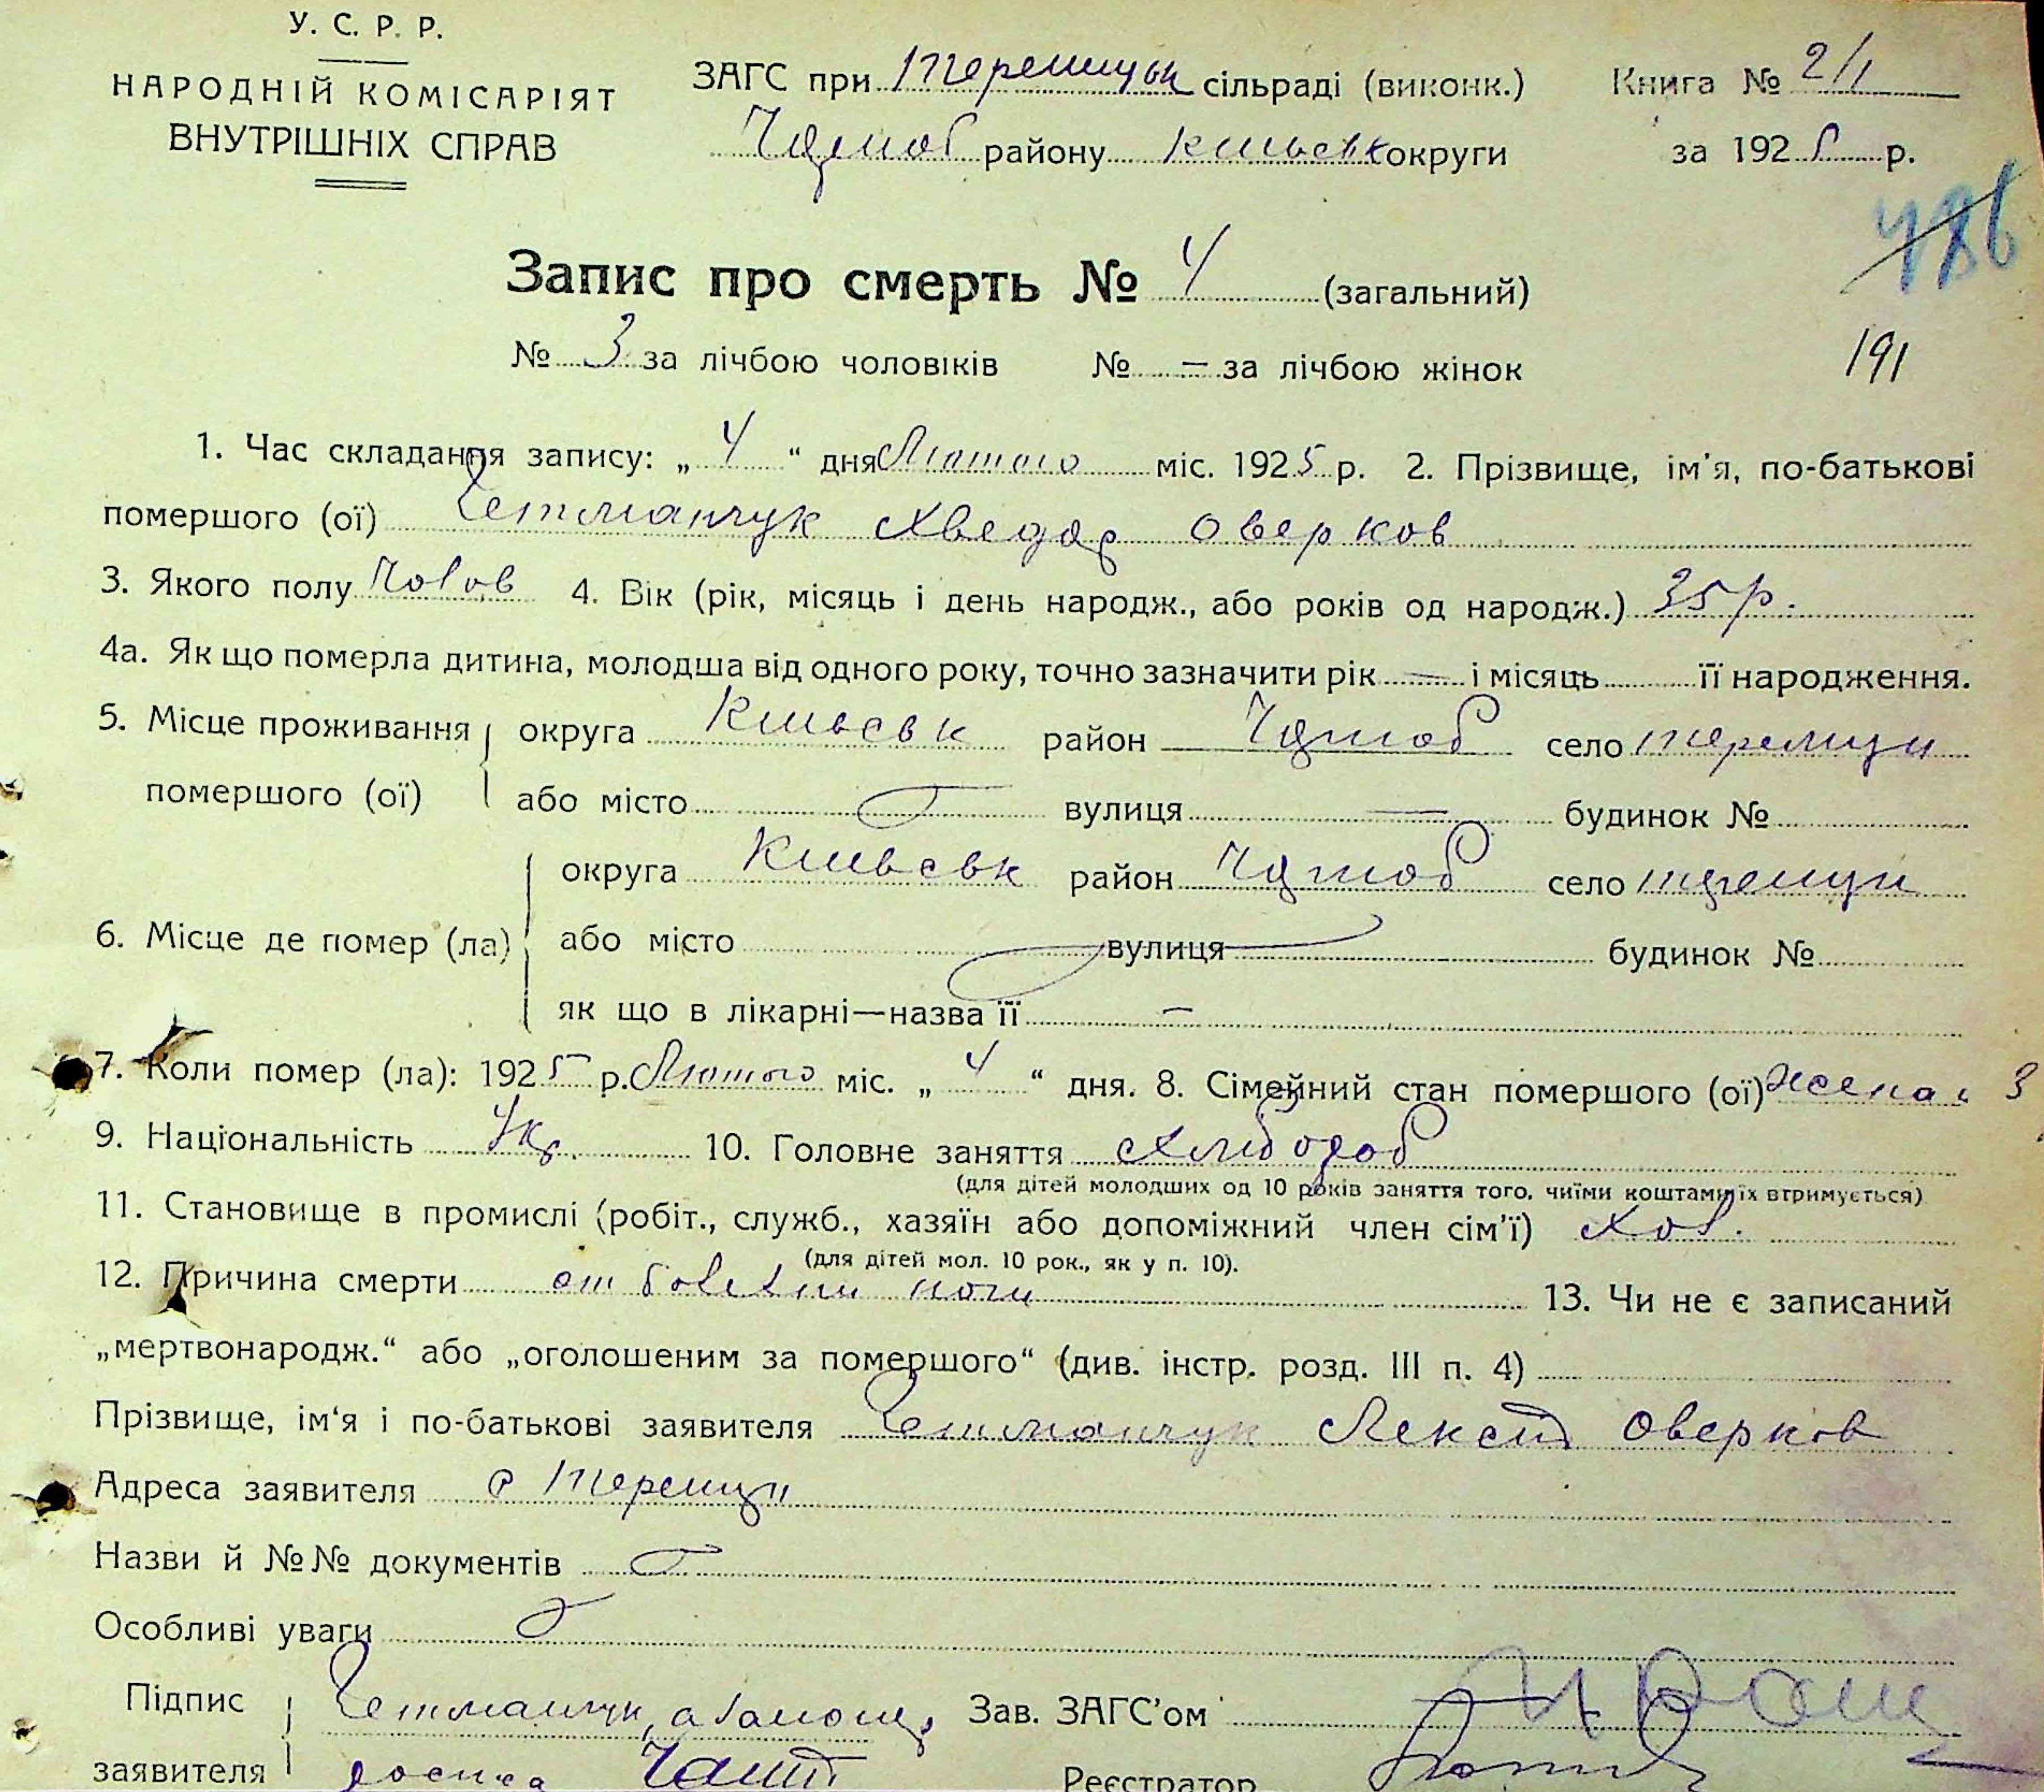 У. С. Р. Р.
НАРОДНІЙ КОМІСАРІЯТ
ВНУТРІШНІХ СПРАВ
ЗАГС при сільраді (виконк.)
району округи
Книга № 2/1
за 1925 р.
786
Запис про смерть № 4 (загальний)
№ 3 за лічбою чоловіків № — за лічбою жінок
191
1. Час складання запису: „ 4 “ дня Лютого міс. 1925 р. 2. Прізвище, ім'я, по-батькові
помершого (ої) Гетманчук Хведор Оверков
3. Якого полу Чолов 4. Вік (рік, місяць і день народж., або років од народж.) 35 р.
4а. Як що померла дитина, молодша від одного року, точно зазначити рік — і місяць її народження.
5. Місце проживання помершого (ої) округа район село
або місто — вулиця — будинок №
6. Місце де помер (ла) округа район село
або місто вулиця будинок №
як що в лікарні—назва її —
7. Коли помер (ла): 1925 р. Лютого міс. „ 4 “ дня. 8. Сімейний стан помершого (ої) жена
9. Національність Укр. 10. Головне заняття Хлібороб
(для дітей молодших од 10 років заняття того, чиїми коштами їх втримується)
11. Становище в промислі (робіт., служб., хазяїн або допоміжний член сім'ї)
(для дітей мол. 10 рок., як у п. 10).
12. Причина смерти от болезни ноги 13. Чи не є записаний
„мертвонародж.“ або „оголошеним за помершого“ (див. інстр. розд. III п. 4)
Прізвище, ім'я і по-батькові заявителя Гетманчук Оверков
Адреса заявителя с
Назви й №№ документів
Особливі уваги
Підпис заявителя Гетманчук
Зав. ЗАГС'ом
Реєстратор